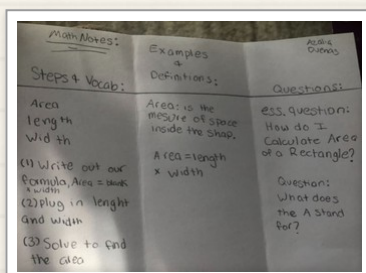 Math Notes:
Steps & Vocab:
Area
length
Width
(1) Write out our
formula, Area = blank
x width
(2) Plug in lenght
and width
(3) Solve to find
the area
Examples
&
Definitions:
Area: is the
mesure of space
inside the shap.
Area = length
x width
Questions:
ess. question:
How do I
Calculate Area
of a Rectangle?
Question:
What does
the A stand
for?